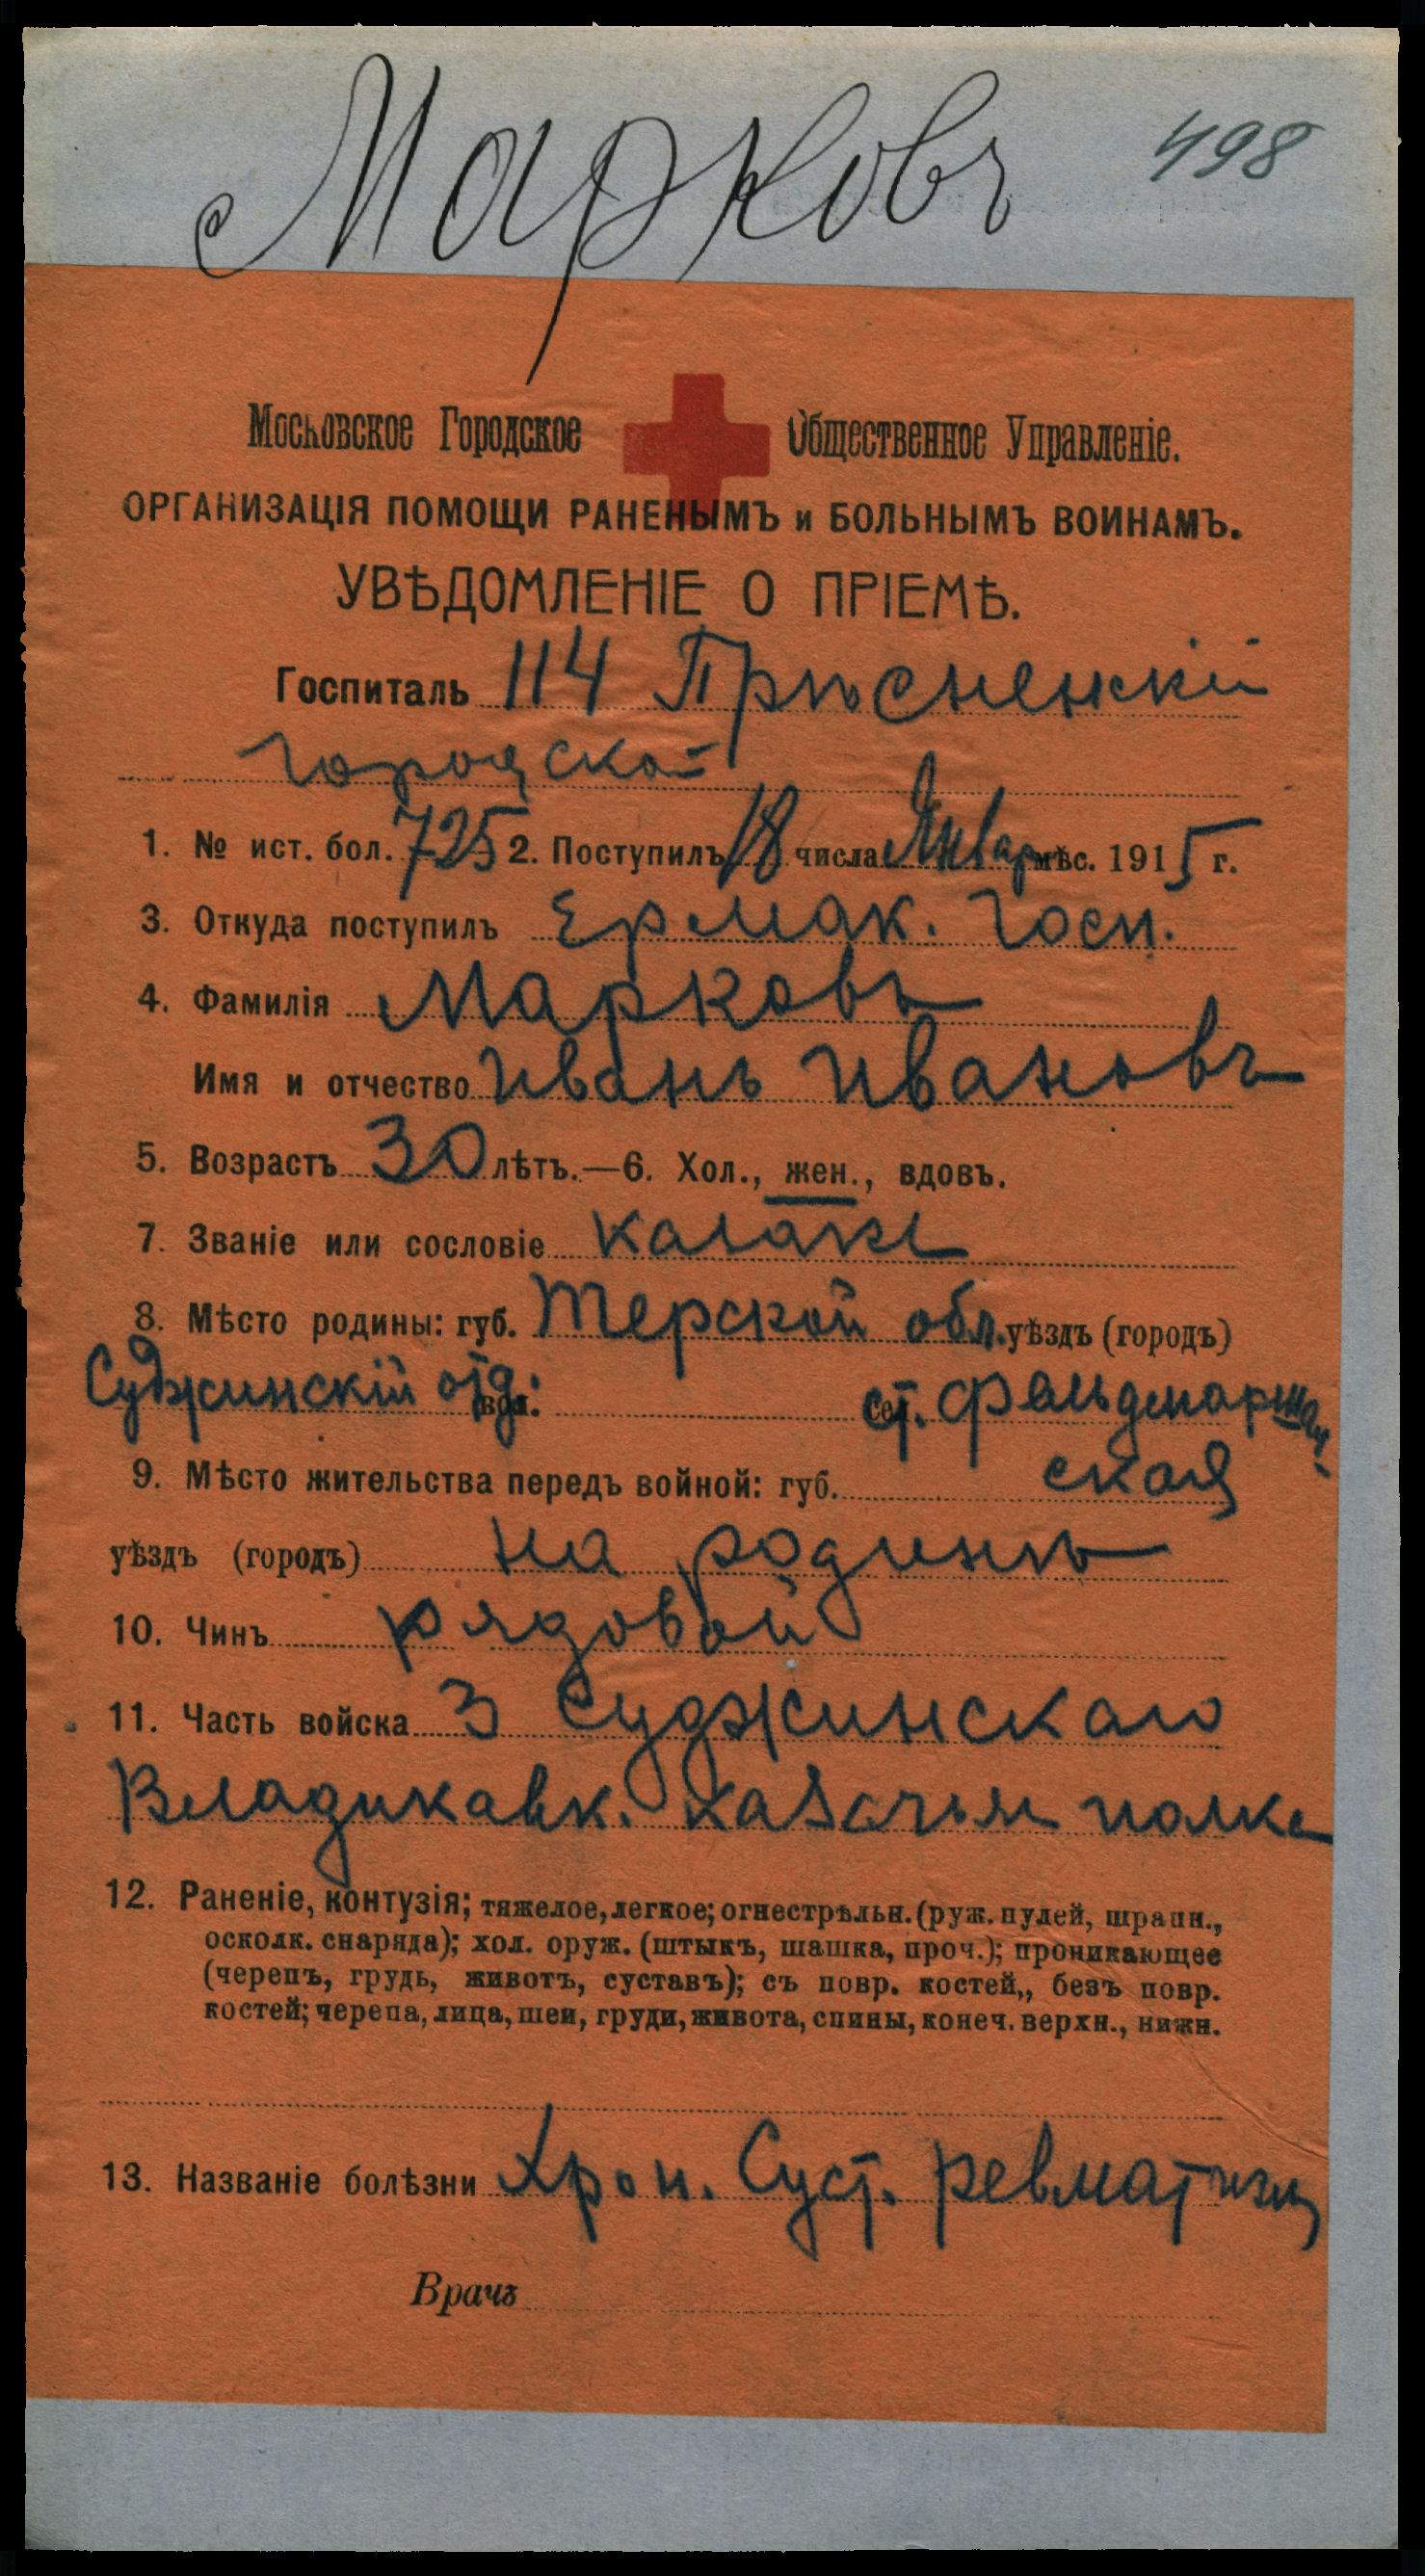 Марковъ 498
Московское Городское Общественное Управленіе.
ОРГАНИЗАЦІЯ ПОМОЩИ РАНЕНЫМЪ и БОЛЬНЫМЪ ВОИНАМЪ.
УВѢДОМЛЕНІЕ О ПРІЕМѢ.
Госпиталь 114 Прѣсненскій
городской
1. № ист. бол. 725 2. Поступилъ 18 числа Январ мѣс. 1915 г.
3. Откуда поступилъ Ермак. Госп.
4. Фамилія Марковъ
Имя и отчество Иванъ Ивановъ
5. Возрастъ 30 лѣтъ.—6. Хол., жен., вдовъ.
7. Званіе или сословіе казакъ
8. Мѣсто родины: губ. Терской обл. уѣздъ (городъ)
Суджинскій отд. вол. ст. Фельдмаршал
9. Мѣсто жительства передъ войной: губ. ская
уѣздъ (городъ) на родинѣ
10. Чинъ рядовой
11. Часть войска 3 Суджинскаго
Владикавк. казачья полка
12. Раненіе, контузія; тяжелое, легкое; огнестрѣльн. (руж. пулей, шрапн.,
осколк. снаряда); хол. оруж. (штыкъ, шашка, проч.); проникающее
(черепъ, грудь, животъ, суставъ); съ повр. костей,, безъ повр.
костей; черепа, лица, шеи, груди, живота, спины, конеч. верхн., нижн.
13. Названіе болѣзни Хрон. Суст. ревматизм
Врачъ